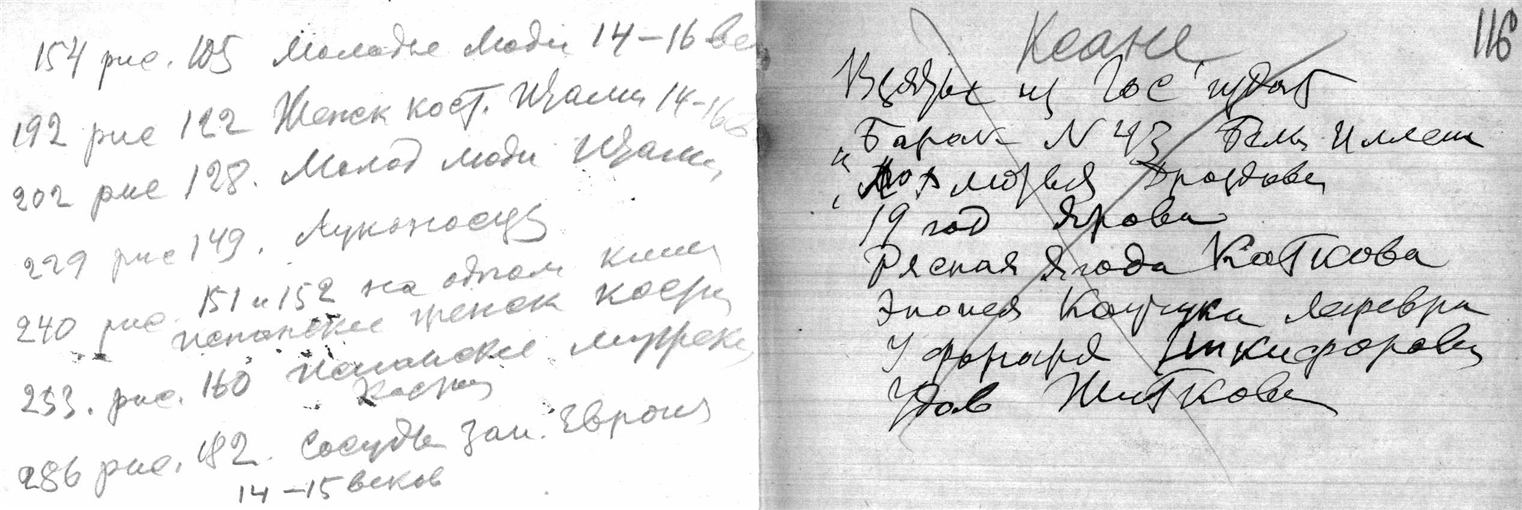 154 рис. 105 Молодые люди 14–16 век
192 рис 122 Женск кост. Итали 14-16 в
202 рис 128. Молод люди Итали
229 рис 149. Лучоносец
240 рис. 151 и 152 на одном
испанские женск костю
253. рис. 160 Испанские мужские
костю
286 рис. 182. Сосуды Зап. Европы
14–15 веков
116
Взятые из Гос издат
"Барак N 43 Бела Иллеш
"Лохмотья Дроздова
19 год Ярова
Рясная Ягода Каткова
Эпопея Каучука Лефевра
У фонаря Никифорова
Удав Житкова